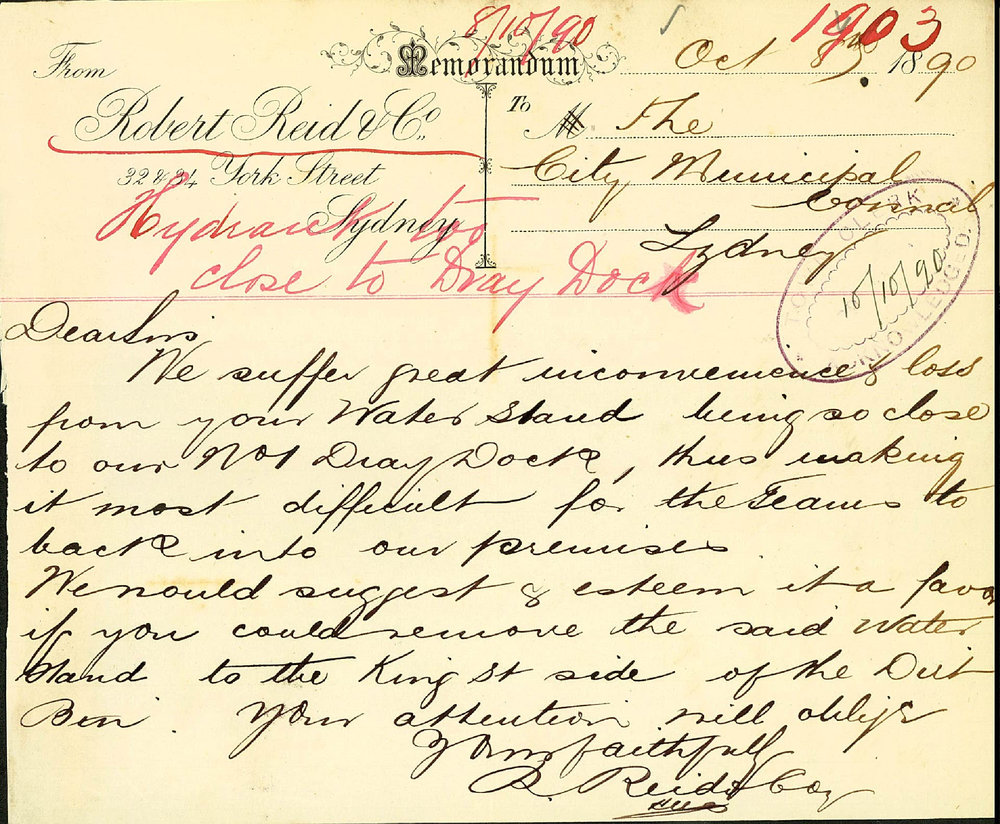 8/10/90
1903
Memorandum
Oct 8th 1890
From
Robert Reid & Co.
32 & 34 York Street
Sydney
To
M The
City Municipal
Council
Sydney
Hydrant too
close to Dray Dock
TOWN CLERK
10/10/90
ACKNOWLEDGED.
Dear Sirs
We suffer great inconvenience & loss
from your Water Stand being so close
to our No 1 Dray Dock, thus making
it most difficult for the Teams to
back into our premises
We would suggest & esteem it a favor
if you could remove the said Water
Stand to the King St side of the Dirt
Bin. Your attention will oblige
Yours faithfully
R. Reid & Coy